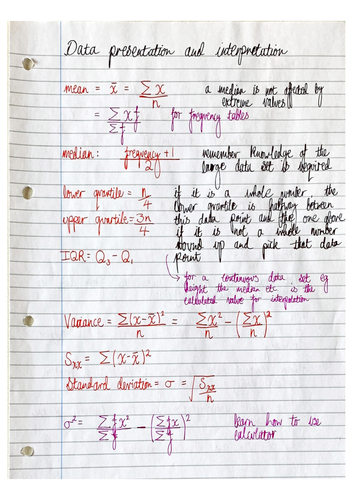 Data presentation and interpretation
mean = x̄ = Σx/n    a median is not affected by
extreme values
= Σxf/Σf    for frequency tables
median: frequency+1/2    remember knowledge of the
large data set is required
lower quartile = n/4    if it is a whole number, the
lower quartile is halfway between
upper quartile = 3n/4    this data point and the one above
if it is not a whole number
round up and pick that data
IQR = Q₃-Q₁    point
for a continuous data set eg
height the median etc. is the
calculated value for interpolation
Variance = Σ(x-x̄)²/n = Σx²/n - (Σx/n)²
Sxx = Σ(x-x̄)²
Standard deviation = σ = √(Sxx/n)
σ² = Σfx²/Σf - (Σfx/Σf)²    learn how to use
calculator